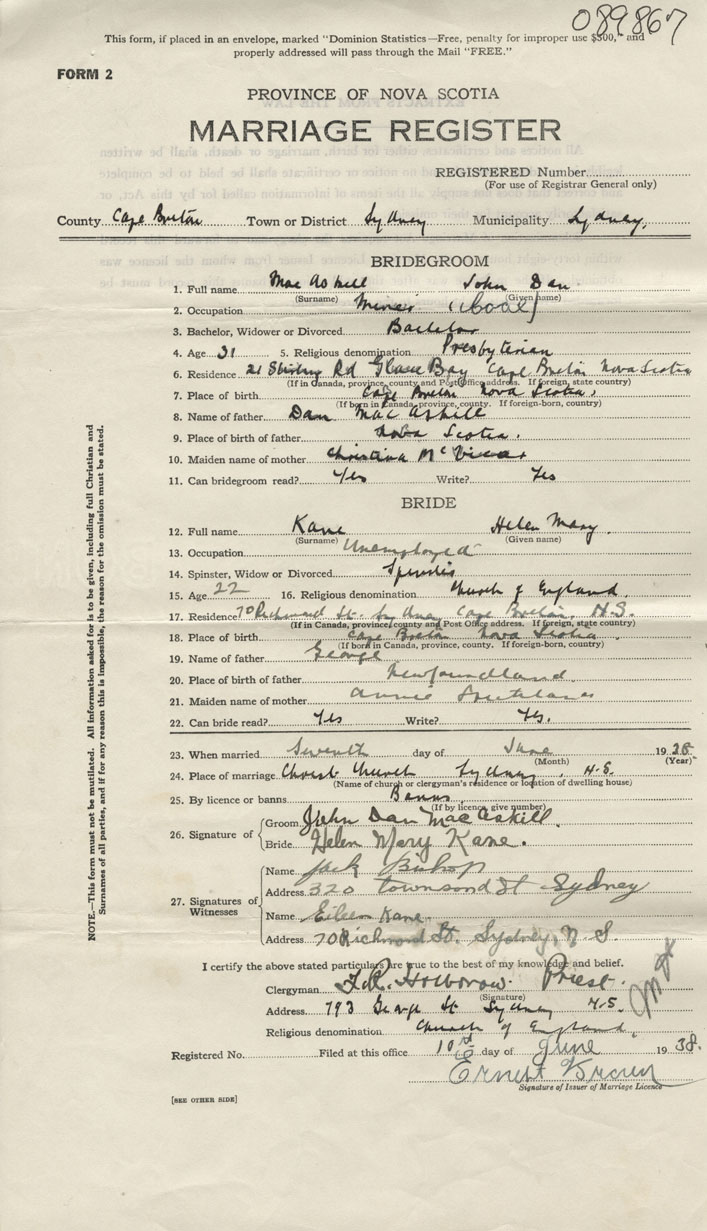 089867
This form, if placed in an envelope, marked "Dominion Statistics—Free, penalty for improper use $300," and
properly addressed will pass through the Mail "FREE."
FORM 2
PROVINCE OF NOVA SCOTIA
MARRIAGE REGISTER
REGISTERED Number
(For use of Registrar General only)
County Cape Breton Town or District Sydney Municipality Sydney,
BRIDEGROOM
1. Full name Mac Askill John Dan
(Surname) (Given name)
2. Occupation Miner (Coal)
3. Bachelor, Widower or Divorced Bachelor
4. Age 31 5. Religious denomination Presbyterian
6. Residence 21 Stirling Rd Glace Bay Cape Breton Nova Scotia
(If in Canada, province, county and Post Office address. If foreign, state country)
7. Place of birth Cape Breton Nova Scotia,
(If born in Canada, province, county. If foreign-born, country)
8. Name of father Dan Mac Askill
9. Place of birth of father Nova Scotia.
10. Maiden name of mother Christina McVicar
11. Can bridegroom read? Yes Write? Yes
BRIDE
12. Full name Kane Helen Mary.
(Surname) (Given name)
13. Occupation Unemployed
14. Spinster, Widow or Divorced Spinster
15. Age 22 16. Religious denomination Church of England.
17. Residence 70 Richmond St. Sydney Cape Breton, N.S.
(If in Canada, province, county and Post Office address. If foreign, state country)
18. Place of birth Cape Breton Nova Scotia
(If born in Canada, province, county. If foreign-born, country)
19. Name of father George
20. Place of birth of father Newfoundland.
21. Maiden name of mother Annie
22. Can bride read? Yes Write? Yes.
23. When married Seventh day of June 1938
(Month) (Year)
24. Place of marriage Christ Church Sydney, N.S.
(Name of church or clergyman's residence or location of dwelling house)
25. By licence or banns Banns
(If by licence, give number)
26. Signature of
Groom John Dan MacAskill.
Bride Helen Mary Kane.
27. Signatures of Witnesses
Name Jack Bishop
Address 320 Townsond St Sydney
Name Eileen Kane.
Address 70 Richmond St. Sydney, N.S.
I certify the above stated particulars are true to the best of my knowledge and belief.
Clergyman Holborow. Priest.
(Signature)
Address 793 George St Sydney N.S.
Religious denomination Church of England.
Registered No. Filed at this office 10 day of June 1938.
Ernest Brown
Signature of Issuer of Marriage Licence
[SEE OTHER SIDE]
NOTE.—This form must not be mutilated. All information asked for is to be given, including full Christian and
Surnames of all parties, and if for any reason this is impossible, the reason for the omission must be stated.